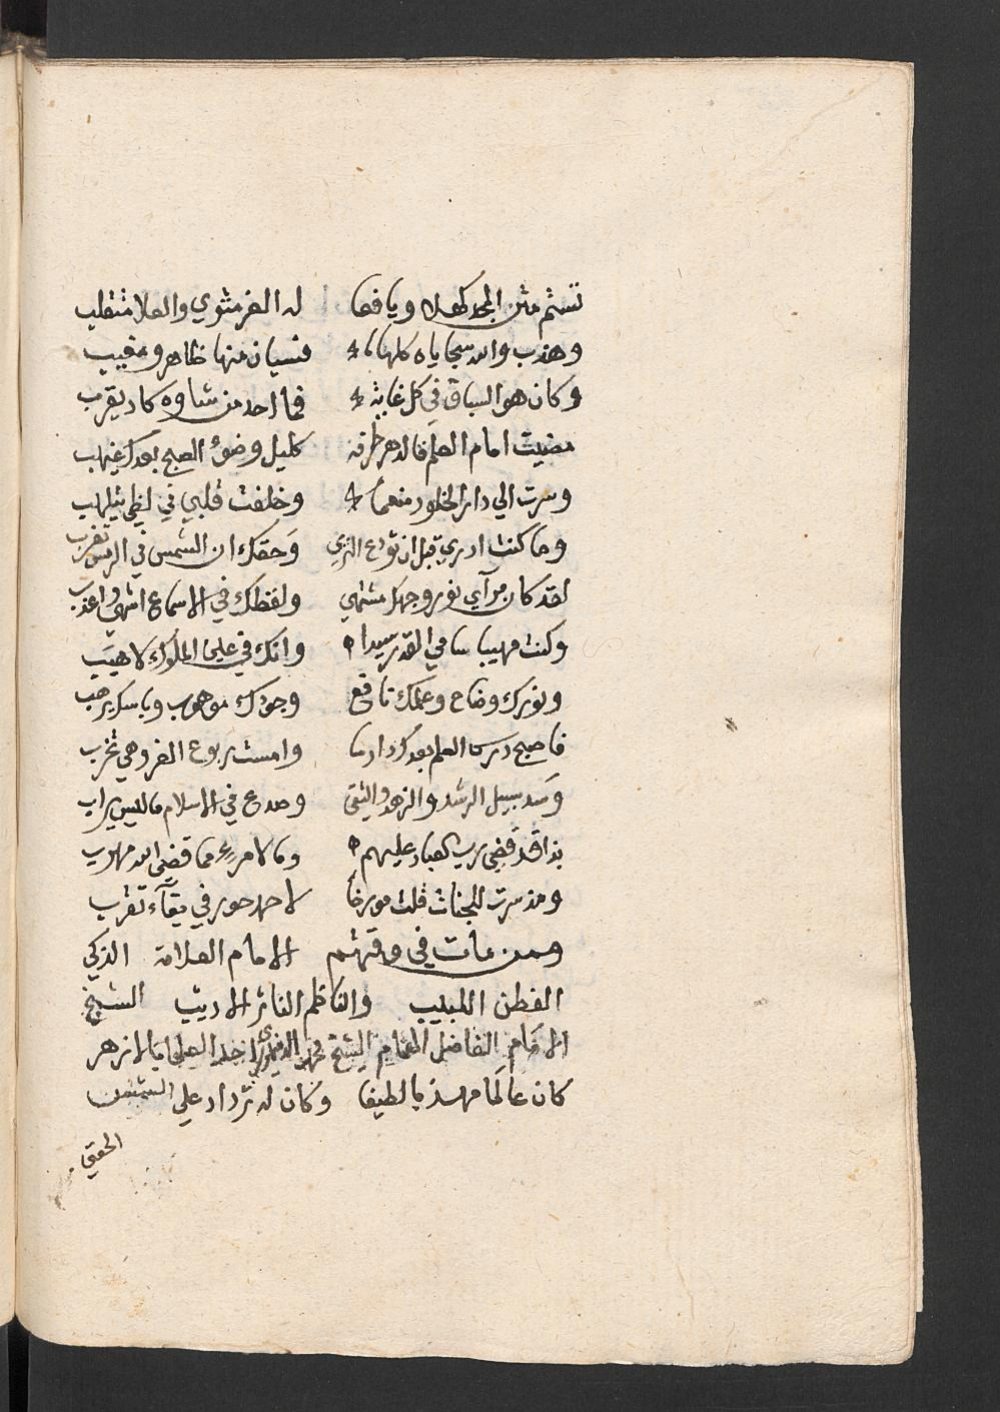 تسنم متن المجد كهلا ويافعا له الفرمثوي والعلا متقلب
وهذب والله سجاياه كلها فسيان منها ظاهر ومغيب
وكان هو السباق في كل غاية فما احد من شاوه كاد يقرب
مضيت امام العلم فالدهر طرفه كليل وضوء الصبح بعدك غيهب
وسرت الي دار الخلود منعما وخلفت قلبي في لظي يتلهب
وما كنت ادري قبل ان تودع الثري وحقك ان الشمس في الرمس تغرب
لقد كان مرآي نور وجهك مشتهي ولفظك في الاسماع اشهي واعذب
وكنت مهيبا سامي القدر سيدا وانك في علي الملوك لاهيب
ونورك وضاح وعلمك نافع وجودك موهوب وباسك يرهب
فاصبح درس العلم بعدك دارسا وامست ربوع الفر وهي تخرب
وسد سبيل الرشد والزهد والتقي وصدع في الاسلام ما ليس يراب
بذا قد قضي رب العباد عليهم وما لامرء مما قضي الله مهرب
ومذ سرت للجنات قلت مورخا لاحمد حور في بقآء تقرب
ومن مات في وقتهم الامام العلامة الذكي
الفطن اللبيب والناظم الناثر الاديب الشيخ
الامام الفاضل الهمام الشيخ محمد احد العلما بالازهر
كان عالما مهذبا لطيفا وكان له تردد علي الشمس
الحفني